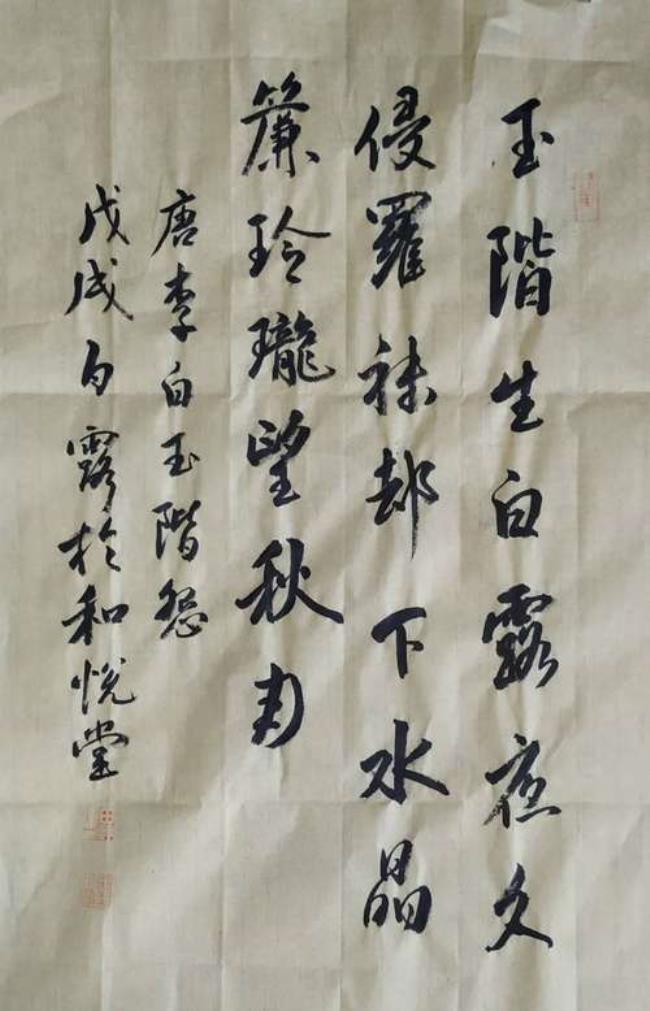 玉階生白露夜久
侵羅袜却下水晶
簾玲瓏望秋月
唐李白玉階怨
戊戌白露於和悅堂